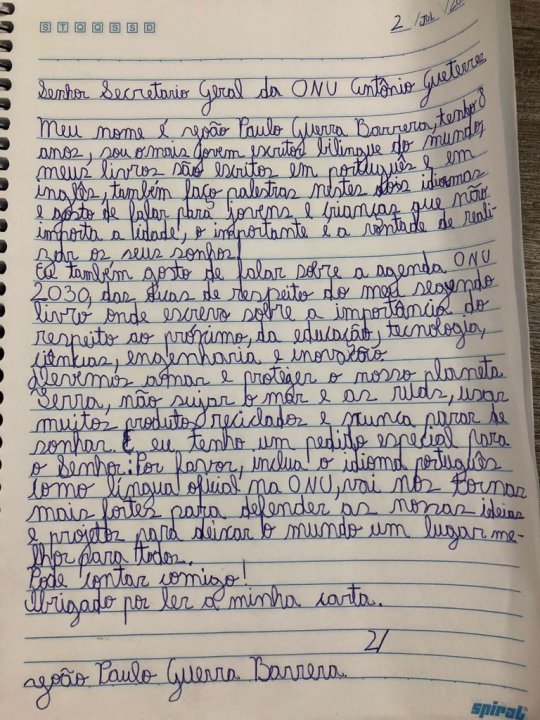 S T Q Q S S D
2 / JUL / 20
Senhor Secretario Geral da ONU Antônio Gueterres
Meu nome é João Paulo Guerra Barrera, tenho 8
anos, sou o mais jovem escritor bilingue do mundo,
meus livros são escritos em português e em
inglês, também faço palestras nestes dois idiomas
e gosto de falar para jovens e crianças que não
importa a idade, o importante é a vontade de reali-
zar os seus sonhos!
Eu também gosto de falar sobre a agenda ONU
2030, das ruas de respeito do meu segundo
livro onde escrevo sobre a importância do
respeito ao próximo, da educação, tecnologia,
ciências, engenharia e inovação
Devemos amar e proteger o nosso planeta
Terra, não sujar o mar e as ruas, usar
muitos produtos reciclados e nunca parar de
sonhar. E eu tenho um pedido especial para
o Senhor: Por favor, inclua o idioma português
como língua oficial na ONU, vai nos tornar
mais fortes para defender as nossas ideias
e projetos para deixar o mundo um lugar me-
lhor para todos.
Pode contar comigo!
Obrigado por ler a minha carta.
2/
João Paulo Guerra Barrera.
spiral